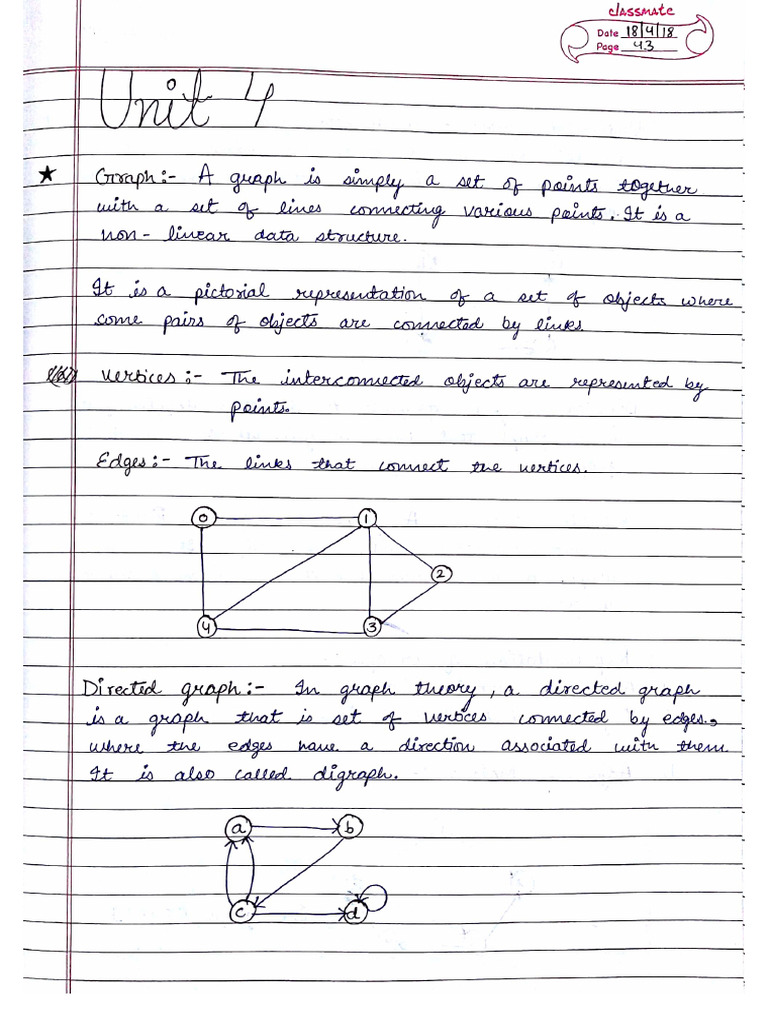 classmate
Date 18/4/18
Page 43
Unit 4
Graph:- A graph is simply a set of points together
with a set of lines connecting various points. It is a
non-linear data structure.
It is a pictorial representation of a set of objects where
some pairs of objects are connected by links.
Vertices:- The interconnected objects are represented by
points.
Edges:- The links that connect the vertices.
0 1
2
4 3
Directed graph:- In graph theory, a directed graph
is a graph that is set of vertices connected by edges,
where the edges have a direction associated with them.
It is also called digraph.
a b
c d